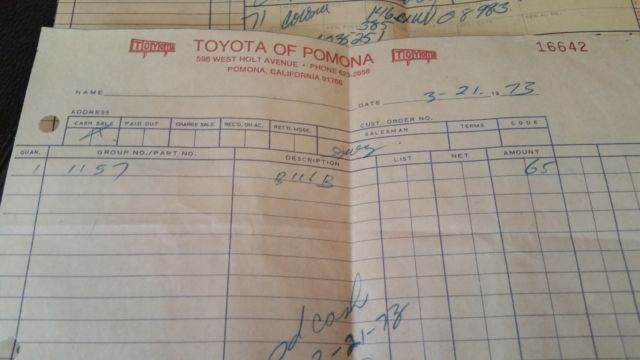 71
585
TOYOTA TOYOTA OF POMONA TOYOTA 16642
596 WEST HOLT AVENUE • PHONE 623-2656
POMONA, CALIFORNIA 91766
NAME DATE 3-21. 1973
ADDRESS
CASH SALE PAID OUT CHARGE SALE REC'D. ON AC. RET'D. MDSE. CUST. ORDER NO. SALESMAN TERMS CODE
QUAN. GROUP NO./PART NO. DESCRIPTION LIST NET AMOUNT
1 1157 BULB 65
pd cash
3-21-73